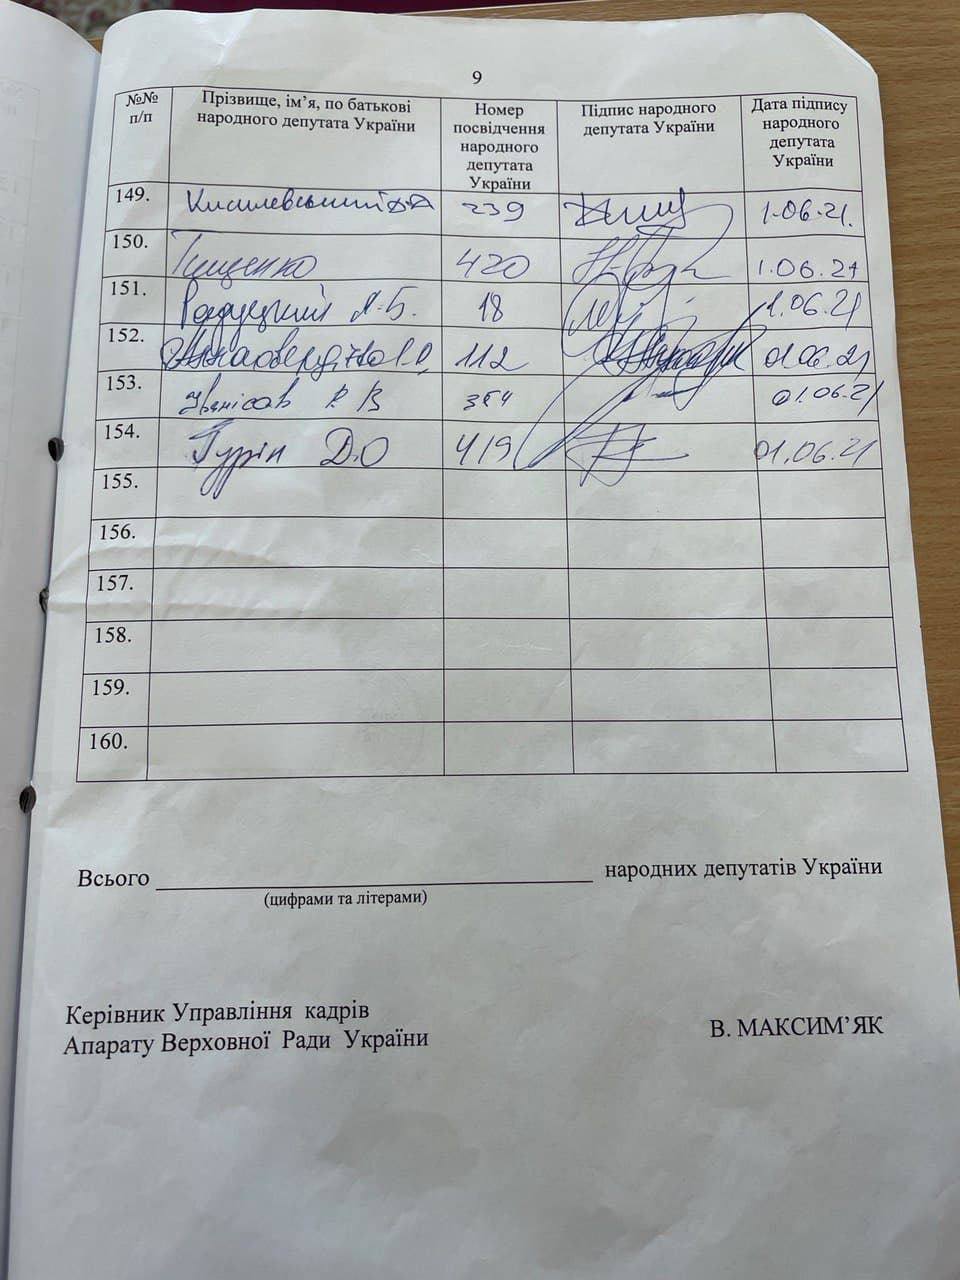 9
№№ п/п Прізвище, ім’я, по батькові народного депутата України Номер посвідчення народного депутата України Підпис народного депутата України Дата підпису народного депутата України
149. 239 1.06.21.
150. Тищенко 420 1.06.21
151. Радуцький М.Б. 18 1.06.21
152. 112 01.06.21
153. 354 01.06.21
154. Гурін Д.О 419 01.06.21
155.
156.
157.
158.
159.
160.
Всього народних депутатів України
(цифрами та літерами)
Керівник Управління кадрів
Апарату Верховної Ради України В. МАКСИМ’ЯК